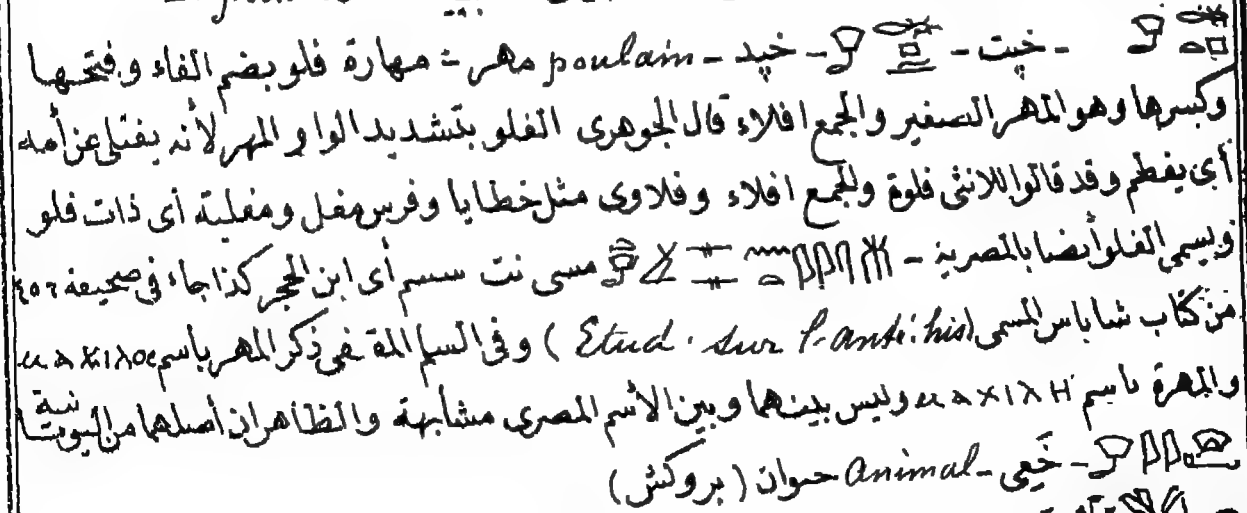 - خپت - - خپد - poulain مهر = مهارة فلو بضم الفاء وفتحها
وكسرها وهو المهر الصغير والجمع افلاء قال الجوهرى الفلو بتشديد الواو المهر لأنه يفتلى عن أمه
أى يفطم وقد قالوا للانثى فلوة والجمع افلاء وفلاوى مثل خطايا وفرس مفل ومفلية أى ذات فلو
ويسمى الفلو أيضا بالمصرية - مسى نت سسم أى ابن الحجر كذا جاء فى صحيفة ٤٥٦
من كتاب شاباس المسمى (Etud. sur l'anti: his) وفى السلم المقفى ذكر المهر باسم
والمهرة باسم وليس بينهما وبين الأسم المصرى مشابهة والظاهر ان أصلهما من اليونانية
- خَعِى - animal حيوان (بروكش)